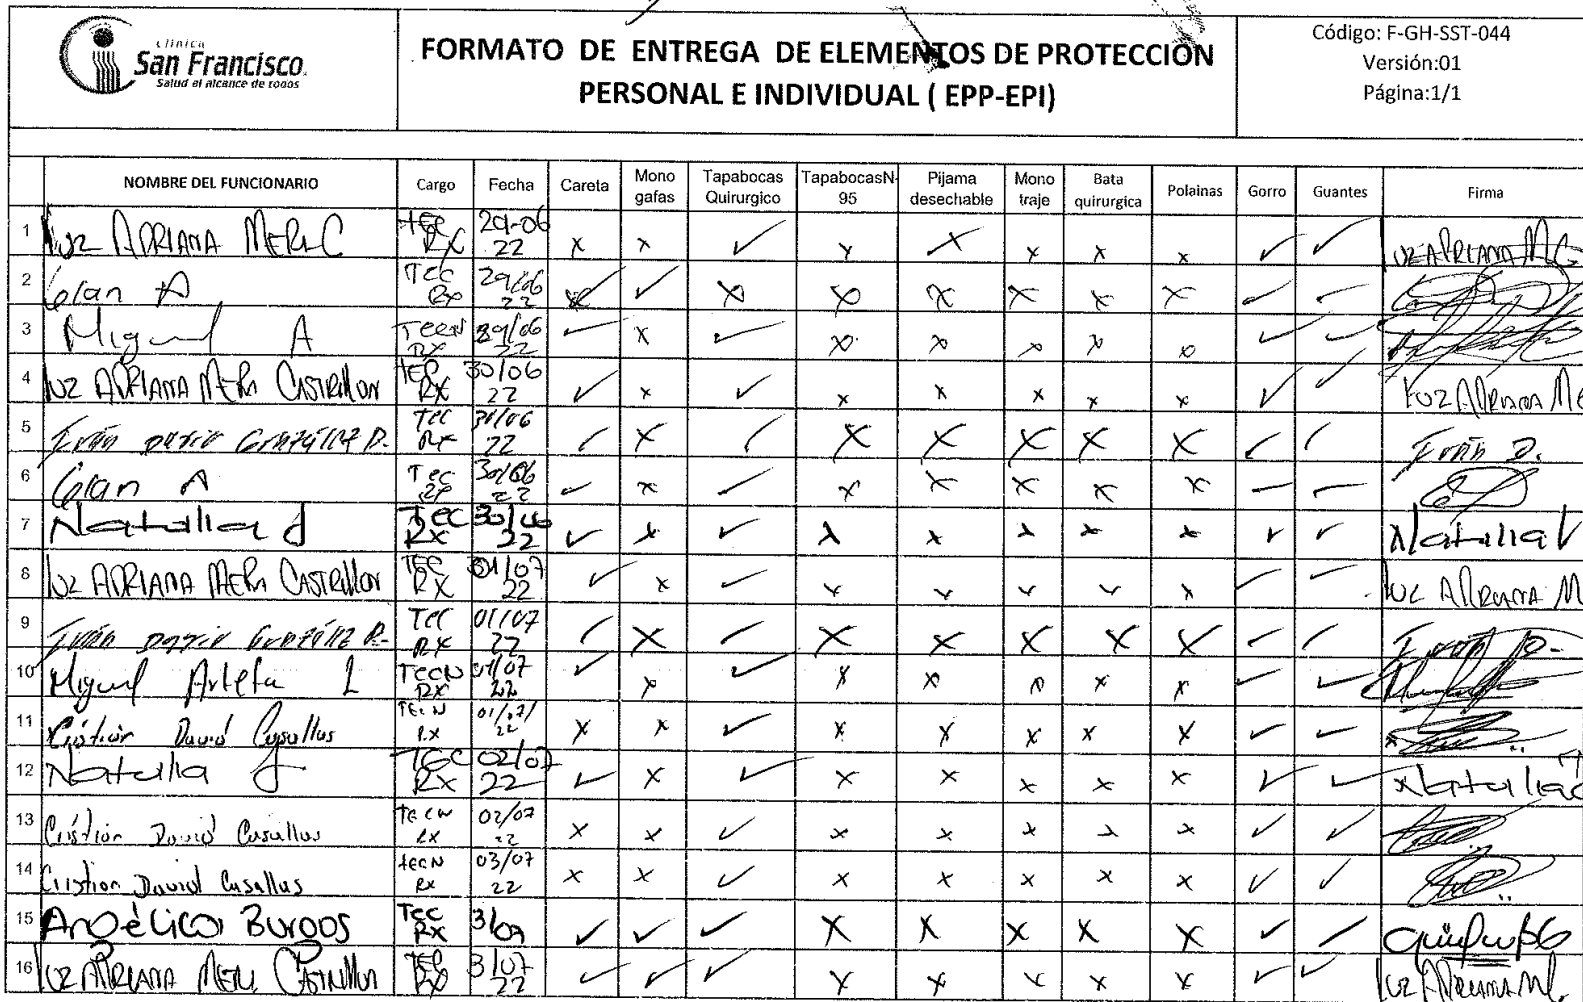 clínica
San Francisco.
Salud al alcance de todos
FORMATO DE ENTREGA DE ELEMENTOS DE PROTECCION
PERSONAL E INDIVIDUAL ( EPP-EPI)
Código: F-GH-SST-044
Versión:01
Página:1/1
NOMBRE DEL FUNCIONARIO Cargo Fecha Careta Mono gafas Tapabocas Quirurgico TapabocasN-95 Pijama desechable Mono traje Bata quirurgica Polainas Gorro Guantes Firma
1 Luz ADRIANA MERA C RX 29-06 22 x x ✓ x x x x x ✓ ✓ LUZ ADRIANA M
2 A Tec Rx 29/06 22 ✓ x x x x x x ✓ ✓
3 Miguel A Tecn RX 29/06 22 ✓ x ✓ x x x x x ✓ ✓
4 LUZ ADRIANA MERA CASTRILLON RX 30/06 22 ✓ x ✓ x x x x x ✓ ✓ LUZ ADRIANA M
5 Iván Darío González D. Tec RX 30/06 22 ✓ x ✓ x x x x x ✓ ✓ Iván D.
6 A Tec 30/06 22 ✓ x ✓ x x x x x ✓ ✓
7 Natalia Tec Rx 30/06 22 ✓ x ✓ x x x x x ✓ ✓ Natalia
8 LUZ ADRIANA MERA CASTRILLON RX 01/07 22 ✓ x ✓ x x x x x ✓ ✓ LUZ ADRIANA M
9 Iván Darío González Tec RX 01/07 22 ✓ x ✓ x x x x x ✓ ✓ Iván D.
10 Miguel Tecn RX 01/07 22 ✓ x ✓ x x x x x ✓ ✓
11 Cristian David Casallas Tecn RX 01/07/22 x x ✓ x x x x x ✓ ✓
12 Natalia Tec Rx 02/07 22 ✓ x ✓ x x x x x ✓ ✓ Natalia
13 Cristian David Casallas Tecn RX 02/07 22 x x ✓ x x x x x ✓ ✓
14 Cristian David Casallas tecn Rx 03/07 22 x x ✓ x x x x x ✓ ✓
15 Angélica Burgos Tec Rx ✓ ✓ ✓ x x x x x ✓ ✓
16 LUZ ADRIANA MERA CASTRILLON RX 3/07 22 ✓ ✓ ✓ x x x x x ✓ ✓ LUZ ADRIANA M.